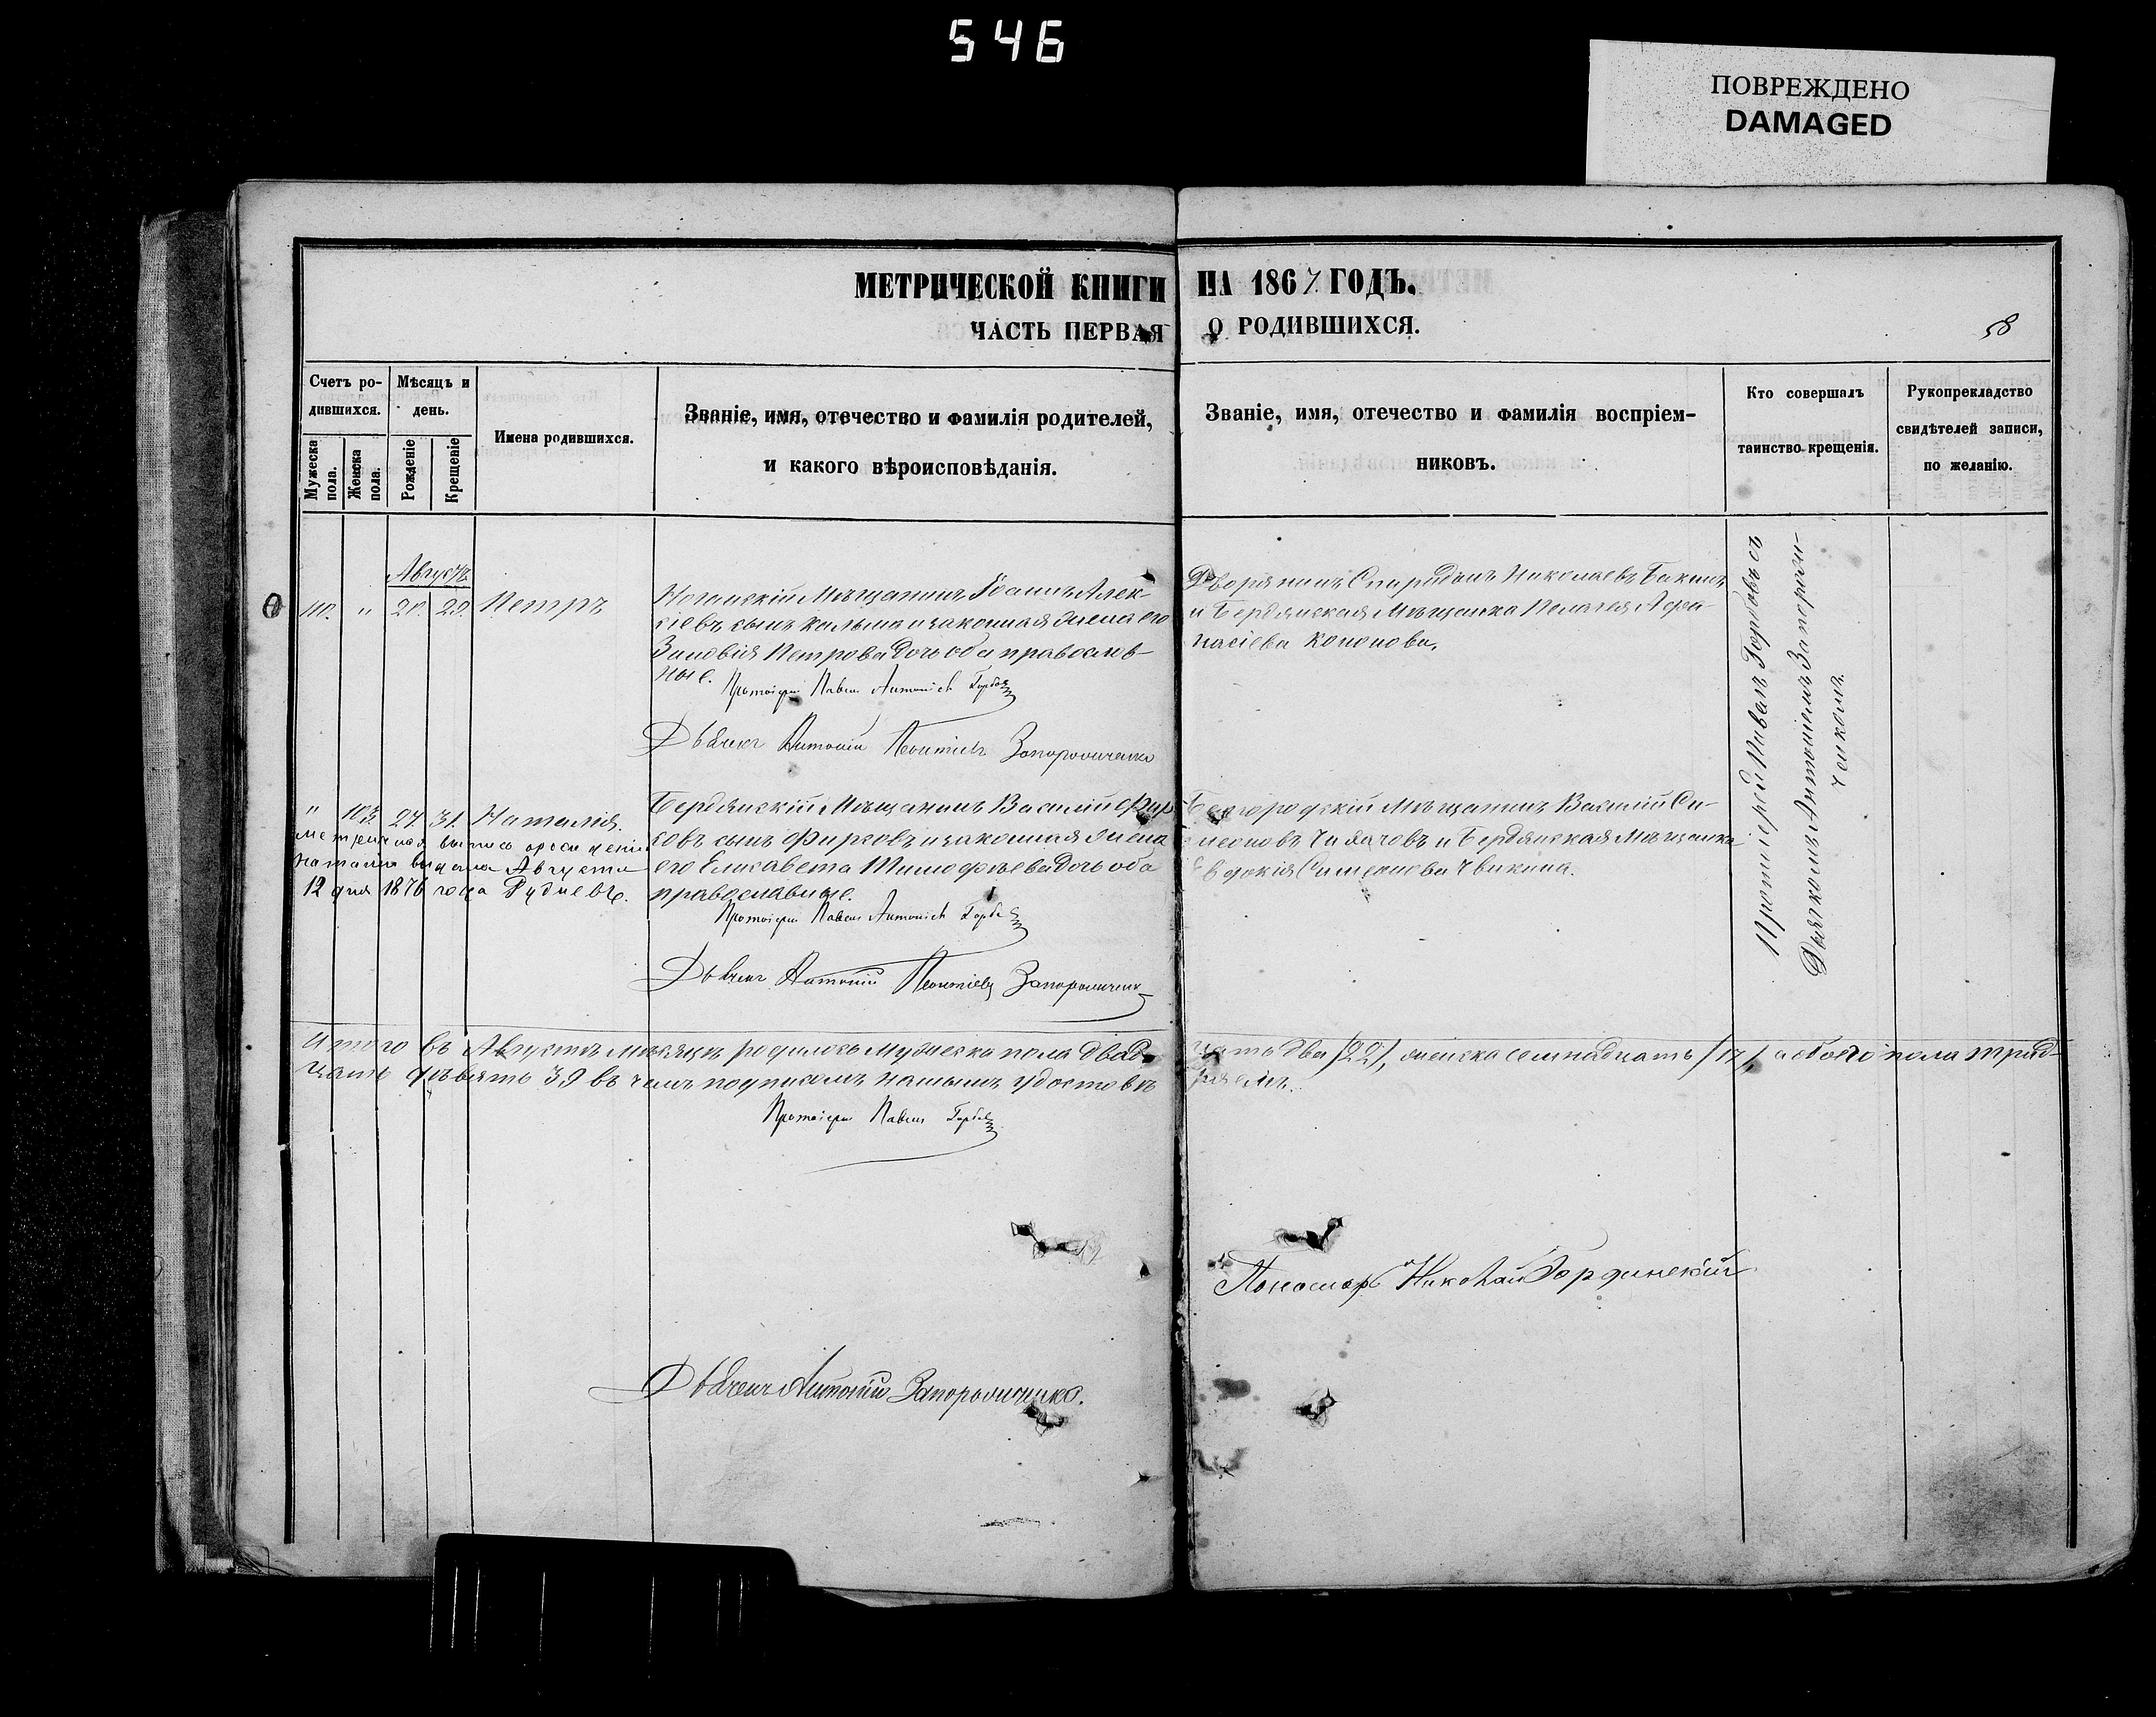 546
ПОВРЕЖДЕНО
DAMAGED
МЕТРИЧЕСКОЙ КНИГИ НА 1867 ГОДЪ.
ЧАСТЬ ПЕРВАЯ О РОДИВШИХСЯ.
58
Счетъ ро-
дившихся.
Мужеска
пола.
Женска
пола.
Мѣсяцъ и
день.
Рожденіе
Крещеніе
Имена родившихся.
Званіе, имя, отечество и фамилія родителей,
и какого вѣроисповѣданія.
Званіе, имя, отечество и фамилія воспріем-
никовъ.
Кто совершалъ
таинство крещенія.
Рукоприкладство
свидѣтелей записи,
по желанію.
Августъ
110. " 20. 29. Петръ
Ногайскій Мѣщанинъ Іоаннъ Алек-
сіевъ сынъ и законная жена его
Зиновія Петрова дочь оба православ-
ные.
Протоіерей Павелъ Антоніевъ Горбовъ
Дьячекъ Антоній Запорожченко
Дворянинъ Спиридонъ Николаевъ
и Бердянская Мѣщанка Пелагея Афа-
насіева Кононова.
Протоіерей Павелъ Горбовъ съ
Дьячкомъ Антоніемъ Запорож-
ченкомъ.
" 103. 27. 31. Наталія.
Метрическая выпись о рожденіи
Наталіи выдана Августа
12 дня 1876 года
Бердянскій Мѣщанинъ Василій Фир-
совъ сынъ Фирсовъ и законная жена
его Елисавета Тимофѣева дочь оба
православные.
Протоіерей Павелъ Антоніевъ Горбовъ
Дьячекъ Антоній Запорожченко
Бѣлгородскій Мѣщанинъ Василій Си-
меоновъ и Бердянская Мѣщанка
Евдокія Симеонова
Итого въ Августѣ мѣсяцѣ родилось Мужеска пола двад-
цать два /22/, женска семнадцать /17/, а обоего пола трид-
цать девять 39 въ чемъ подписомъ нашимъ удостовѣ-
ряемъ.
Протоіерей Павелъ Горбовъ
Пономарь Николай
Дьячекъ Антоній Запорожченко.